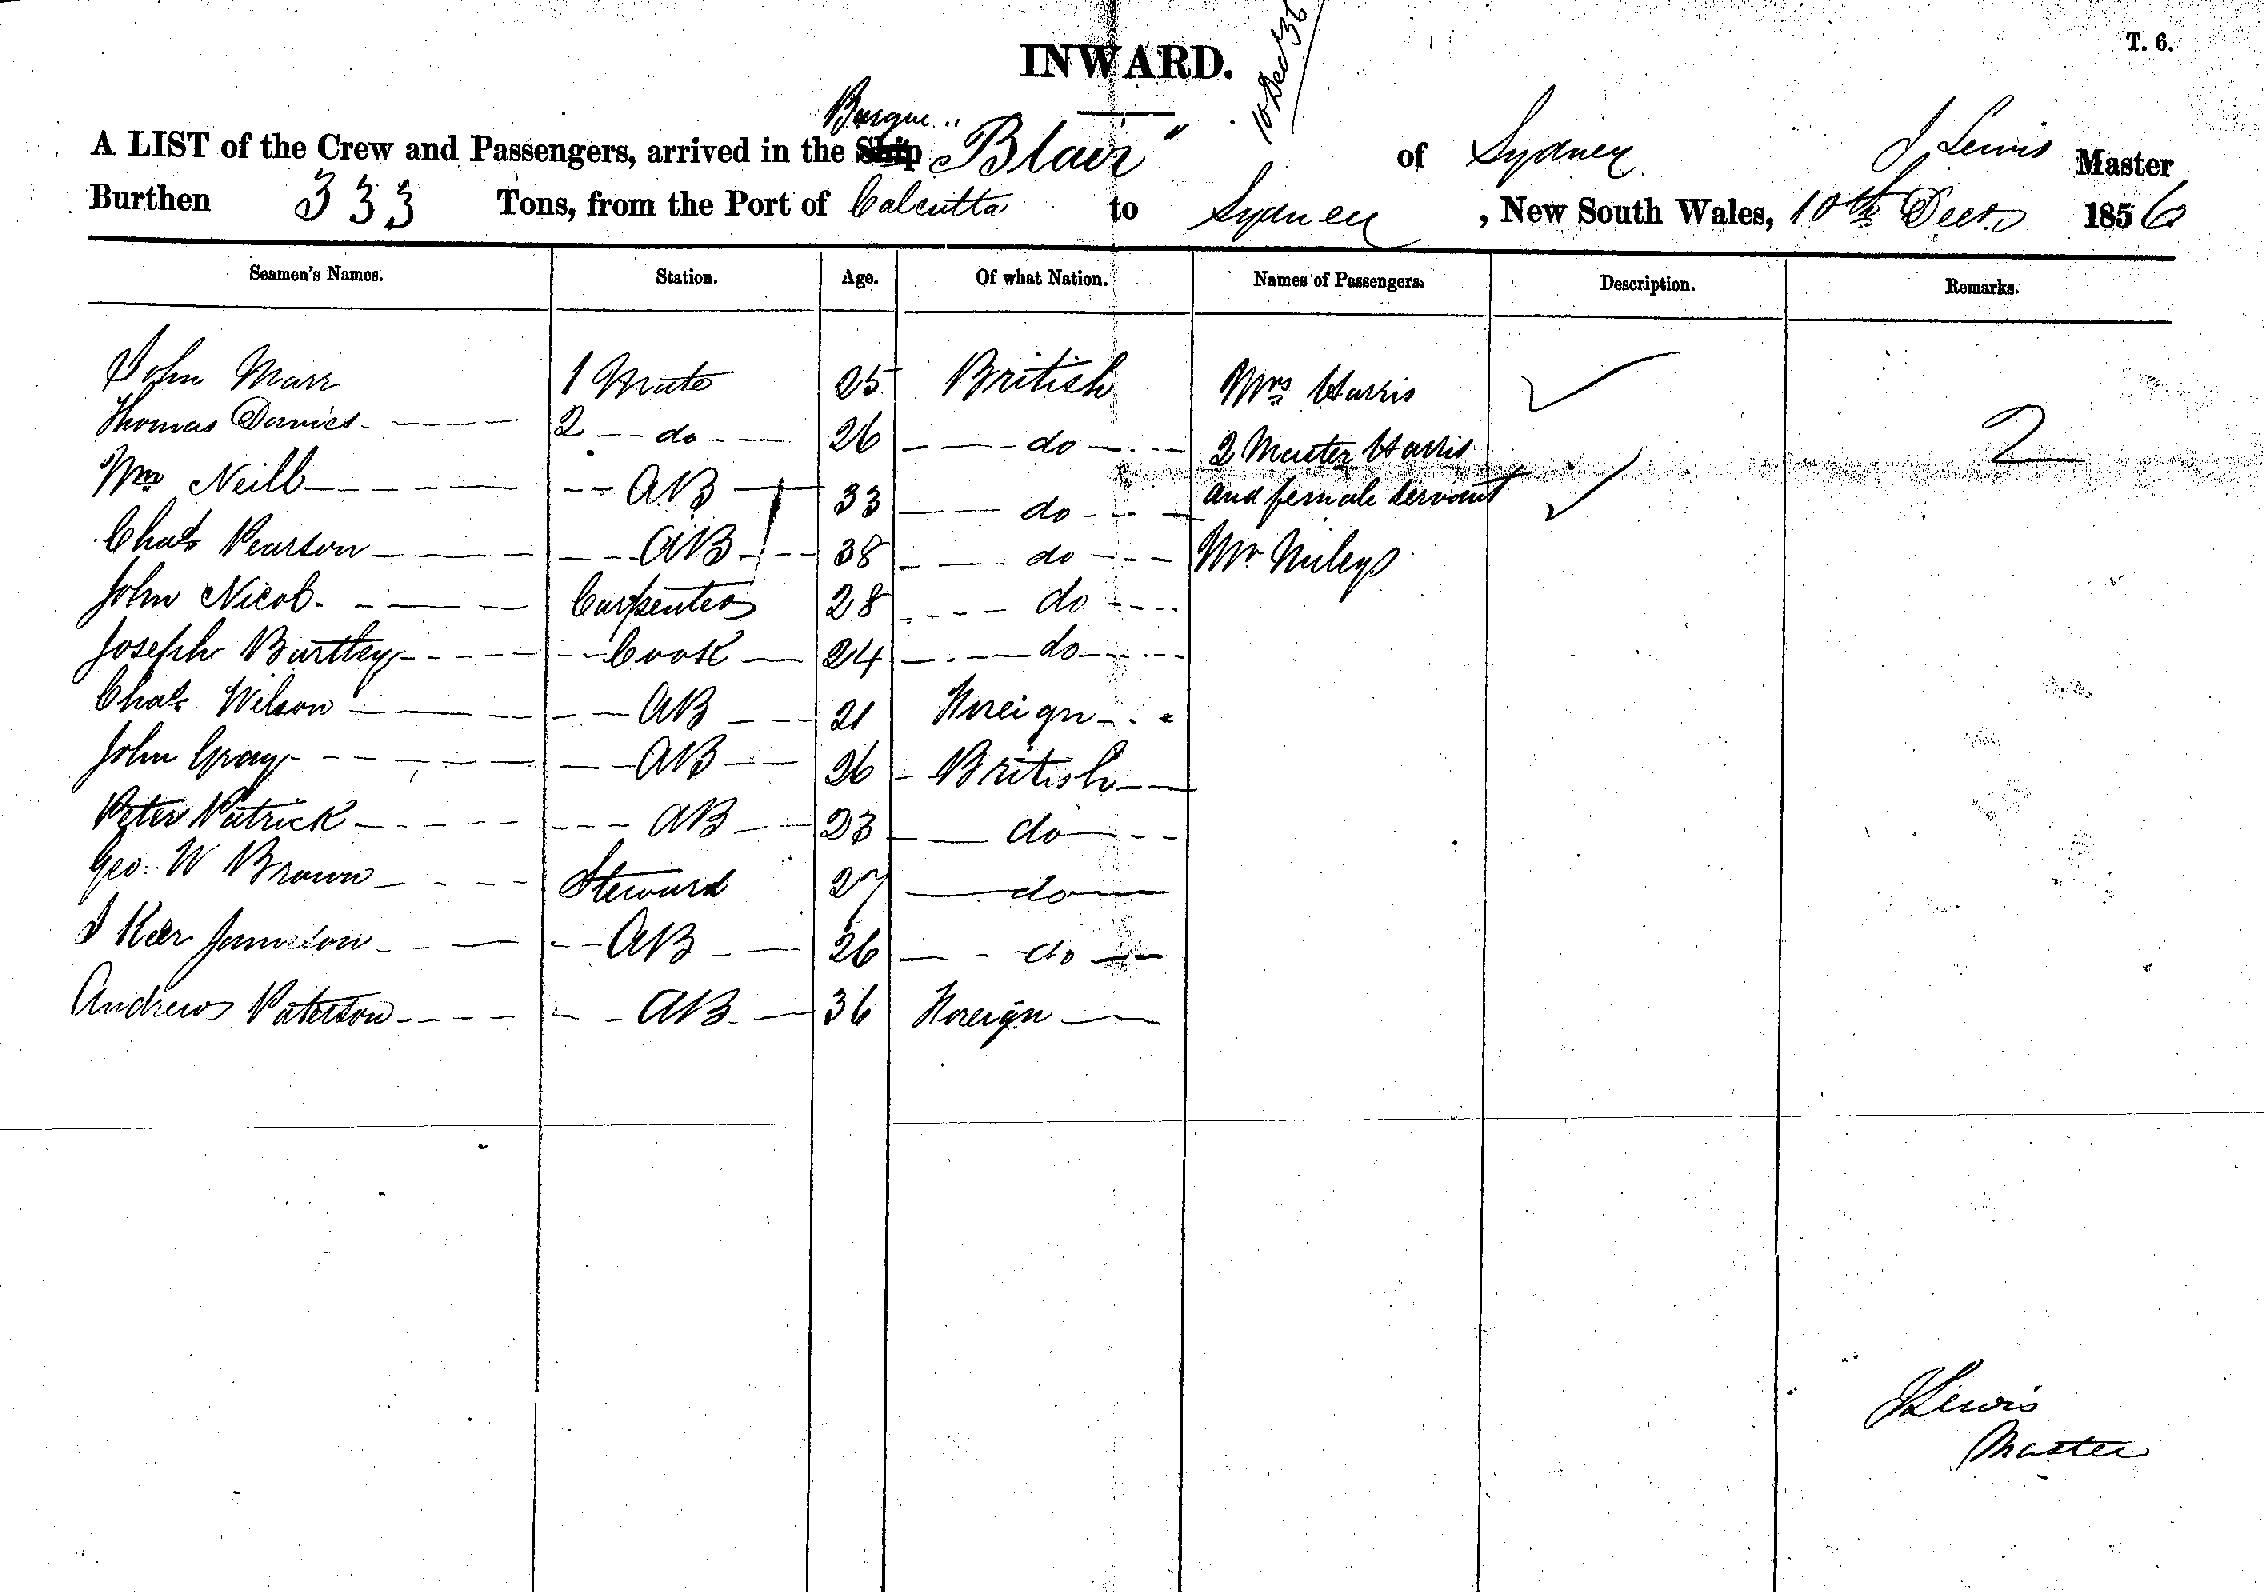 INWARD.
T. 6.
10 Dec 56
Barque
A LIST of the Crew and Passengers, arrived in the Ship "Blair" of Sydney J Lewis Master
Burthen 333 Tons, from the Port of Calcutta to Sydney, New South Wales, 10th Decr 1856
Seamen's Names. Station. Age. Of what Nation. Names of Passengers. Description. Remarks.
John Marr 1 Mate 25 British Mrs Harris
Thomas Davies 2 do 26 do 2 Master Harris 2
Wm Neill AB 33 do and female servant
Chas Pearson AB 38 do Mr
John Nicol Carpenter 28 do
Joseph Bartley Cook 24 do
Chas Wilson AB 21 Foreign
John Gray AB 26 British
Peter Patrick AB 23 do
Geo. W Brown Steward 27 do
J Kerr Jamieson AB 26 do
Andrew Paterson AB 36 Foreign
J Lewis
Master